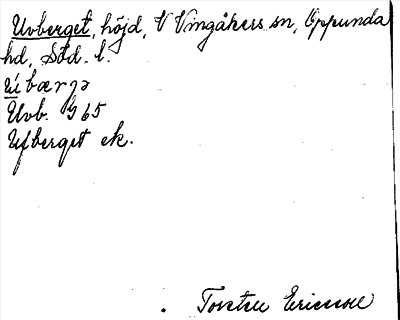 Uvberget, höjd, V Vingåkers sn, Oppunda
hd, Söd. l.
ú̀bærjə
Uvb. G 65
Ufberget ek.
Torsten Ericsson